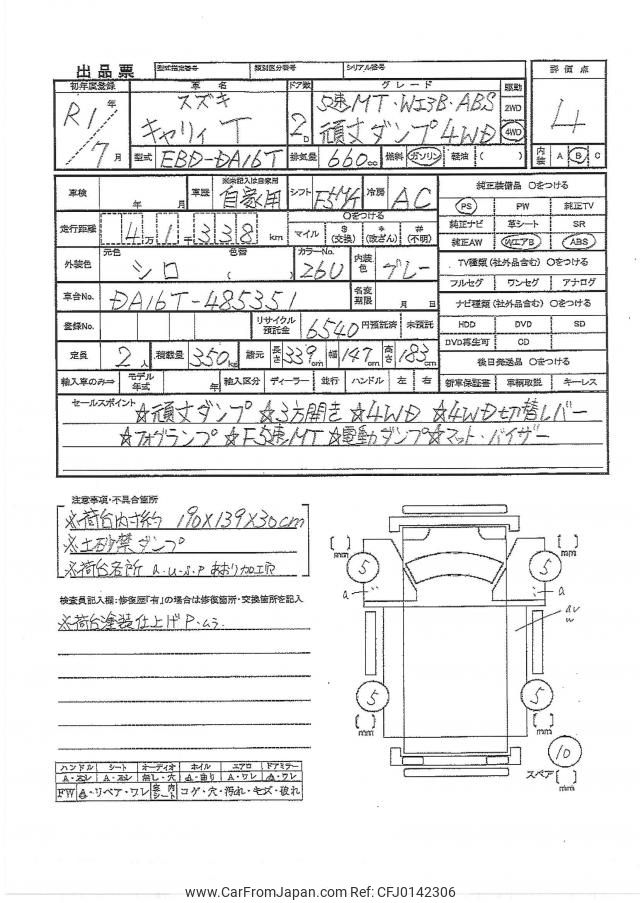 出品票 型式指定番号 類別区分番号 シリアル番号
初年度登録 車名 ドア数 グレード 駆動 評価点
R1年 スズキ 5速MT・WエアB・ABS 2WD
7月 キャリイT 2D 頑丈ダンプ4WD 4WD 4
型式 EBD-DA16T 排気量 660cc 燃料 ガソリン・軽油・( ) 内装 A B C
車検 年 月 車歴 ※未記入は自家用 自家用 シフト F5MT 冷房 AC 純正装備品 〇をつける
〇をつける PS PW 純正TV
走行距離 4万1千338km マイル $(交換) *(改ざん) #(不明) 純正ナビ 革シート SR
純正AW WエアB ABS
外装色 元色 シロ 色替 ( ) カラーNo. 26U 内装色 グレー TV種類(社外品含む) 〇をつける
フルセグ ワンセグ アナログ
車台No. DA16T-485351 名変期限 月 日 ナビ種類(社外品含む) 〇をつける
登録No. リサイクル預託金 6540円預託済 未預託 HDD DVD SD
DVD再生可 CD
定員 2人 積載量 350kg 諸元 長さ339cm 幅147cm 高さ183cm 後日発送品 〇をつける
輸入車のみ⇒ モデル年式 年 輸入区分 ディーラー・並行 ハンドル 左・右 新車保証書 車輌取説 キーレス
セールスポイント ☆頑丈ダンプ ☆3方開き ☆4WD ☆4WD切替レバー
☆フォグランプ ☆F5速MT ☆電動ダンプ ☆マット・バイザー
注意事項・不具合箇所
※荷台内寸約 190×139×30cm
※土砂禁ダンプ
※荷台各所 A・U・S・P あおり加工穴
検査員記入欄：修復歴「有」の場合は修復箇所・交換箇所を記入
※荷台塗装仕上げP・ムラ
[ ]mm 5 5 [ ]mm
a a
5 5
[ ]mm [ ]mm
10
スペア [ ]mm
ハンドル シート オーディオ ホイル エアロ ドアミラー
A・スレ A・スレ 無し・穴 A・曲り A・ワレ A・ワレ
FW A・リペア・ワレ 室内シート コゲ・穴・汚れ・キズ・破れ
www.CarFromJapan.com Ref: CFJ0142306